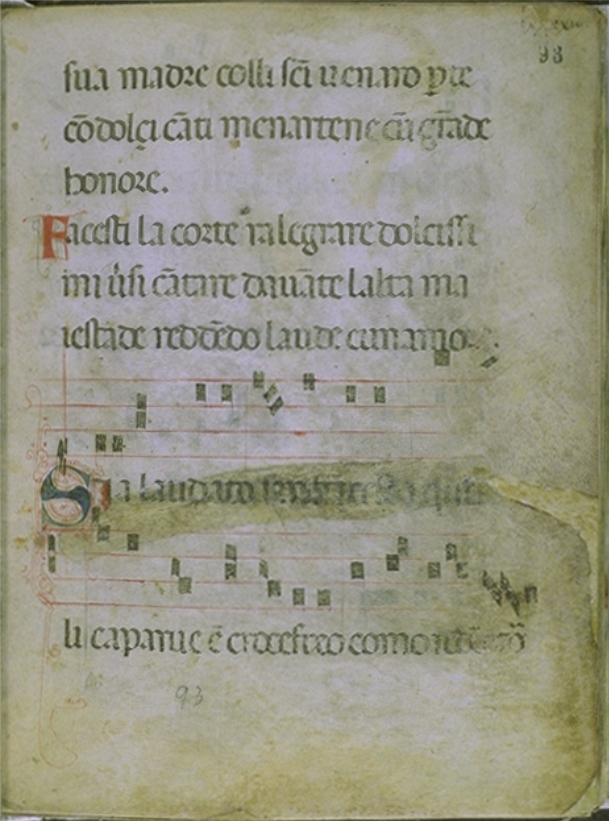 93
sua madre colli sc̄i uenaro
cōdolçi cāti menartene cū grāde
honore.
Facesti la corte ralegrare dolcissi
mi u̓si cātare dauāte lalta ma
iestade reddēdo laude cun amore.
Sia laudato
li caparue ē crocefixo como
93